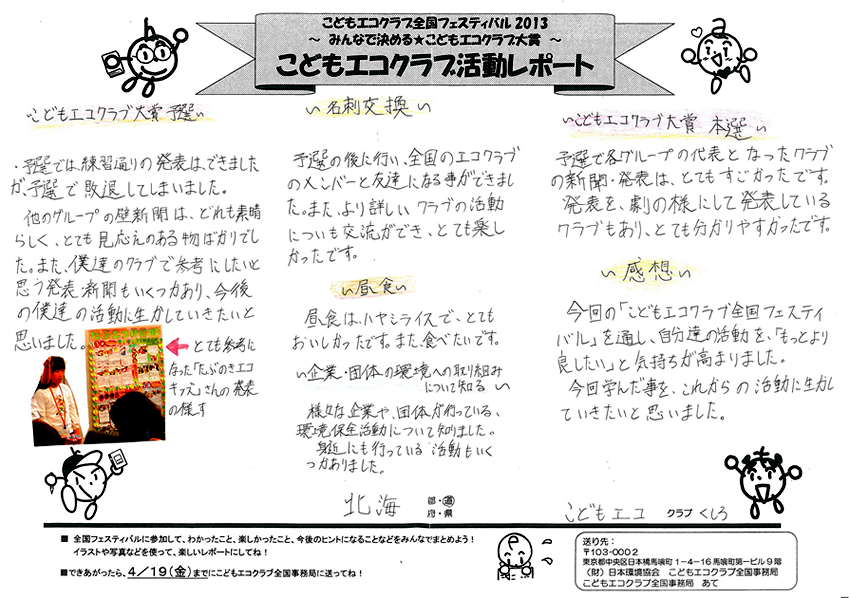 こどもエコクラブ全国フェスティバル 2013
～ みんなで決める★こどもエコクラブ大賞 ～
こどもエコクラブ活動レポート
こどもエコクラブ大賞 予選
・予選では、練習通りの発表は、できました
が、予選で敗退してしまいました。
他のグループの壁新聞は、どれも素晴
らしく、とても見応えのある物ばかりでし
た。また、僕達のクラブで参考にしたいと
思う発表 新聞もいくつかあり、今後
の僕達の活動に生かしていきたいと
思いました。
とても参考に
なった「たぶのきエコ
キッズ」さんの発表
の様子
名刺交換
予選の後に行い、全国のエコクラブ
のメンバーと友達になる事ができまし
た。また、より詳しいクラブの活動
についも交流ができ、とても楽し
かったです。
昼食
昼食は、ハヤシライスで、とても
おいしかったです。また、食べたいです。
企業・団体の環境への取り組み
について知る
様々な企業や、団体が行っている、
環境保全活動について知りました。
身近にも行っている活動もいく
つかありました。
こどもエコクラブ大賞 本選
予選で各グループの代表となったクラブ
の新聞・発表は、とてもすごかったです。
発表を、劇の様にして発表している
クラブもあり、とても分かりやすかったです。
感想
今回の「こどもエコクラブ全国フェスティ
バル」を通し、自分達の活動を、「もっとより
良したい」と気持ちが高まりました。
今回学んだ事を、これからの活動に生かし
ていきたいと思いました。
北海 都・道
府・県
こどもエコ クラブ くしろ
■ 全国フェスティバルに参加して、わかったこと、楽しかったこと、今後のヒントになることなどをみんなでまとめよう!
イラストや写真などを使って、楽しいレポートにしてね!
■できあがったら、4/19(金)までにこどもエコクラブ全国事務局に送ってね!
送り先:
〒103-0002
東京都中央区日本橋馬喰町1-4-16 馬喰町第一ビル9階
(財)日本環境協会 こどもエコクラブ全国事務局
こどもエコクラブ全国事務局 あて